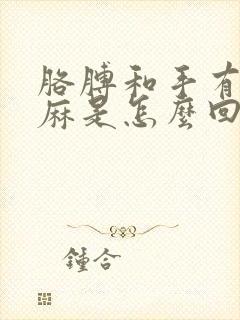 胳膊和手有
麻是怎麼回
鍾合